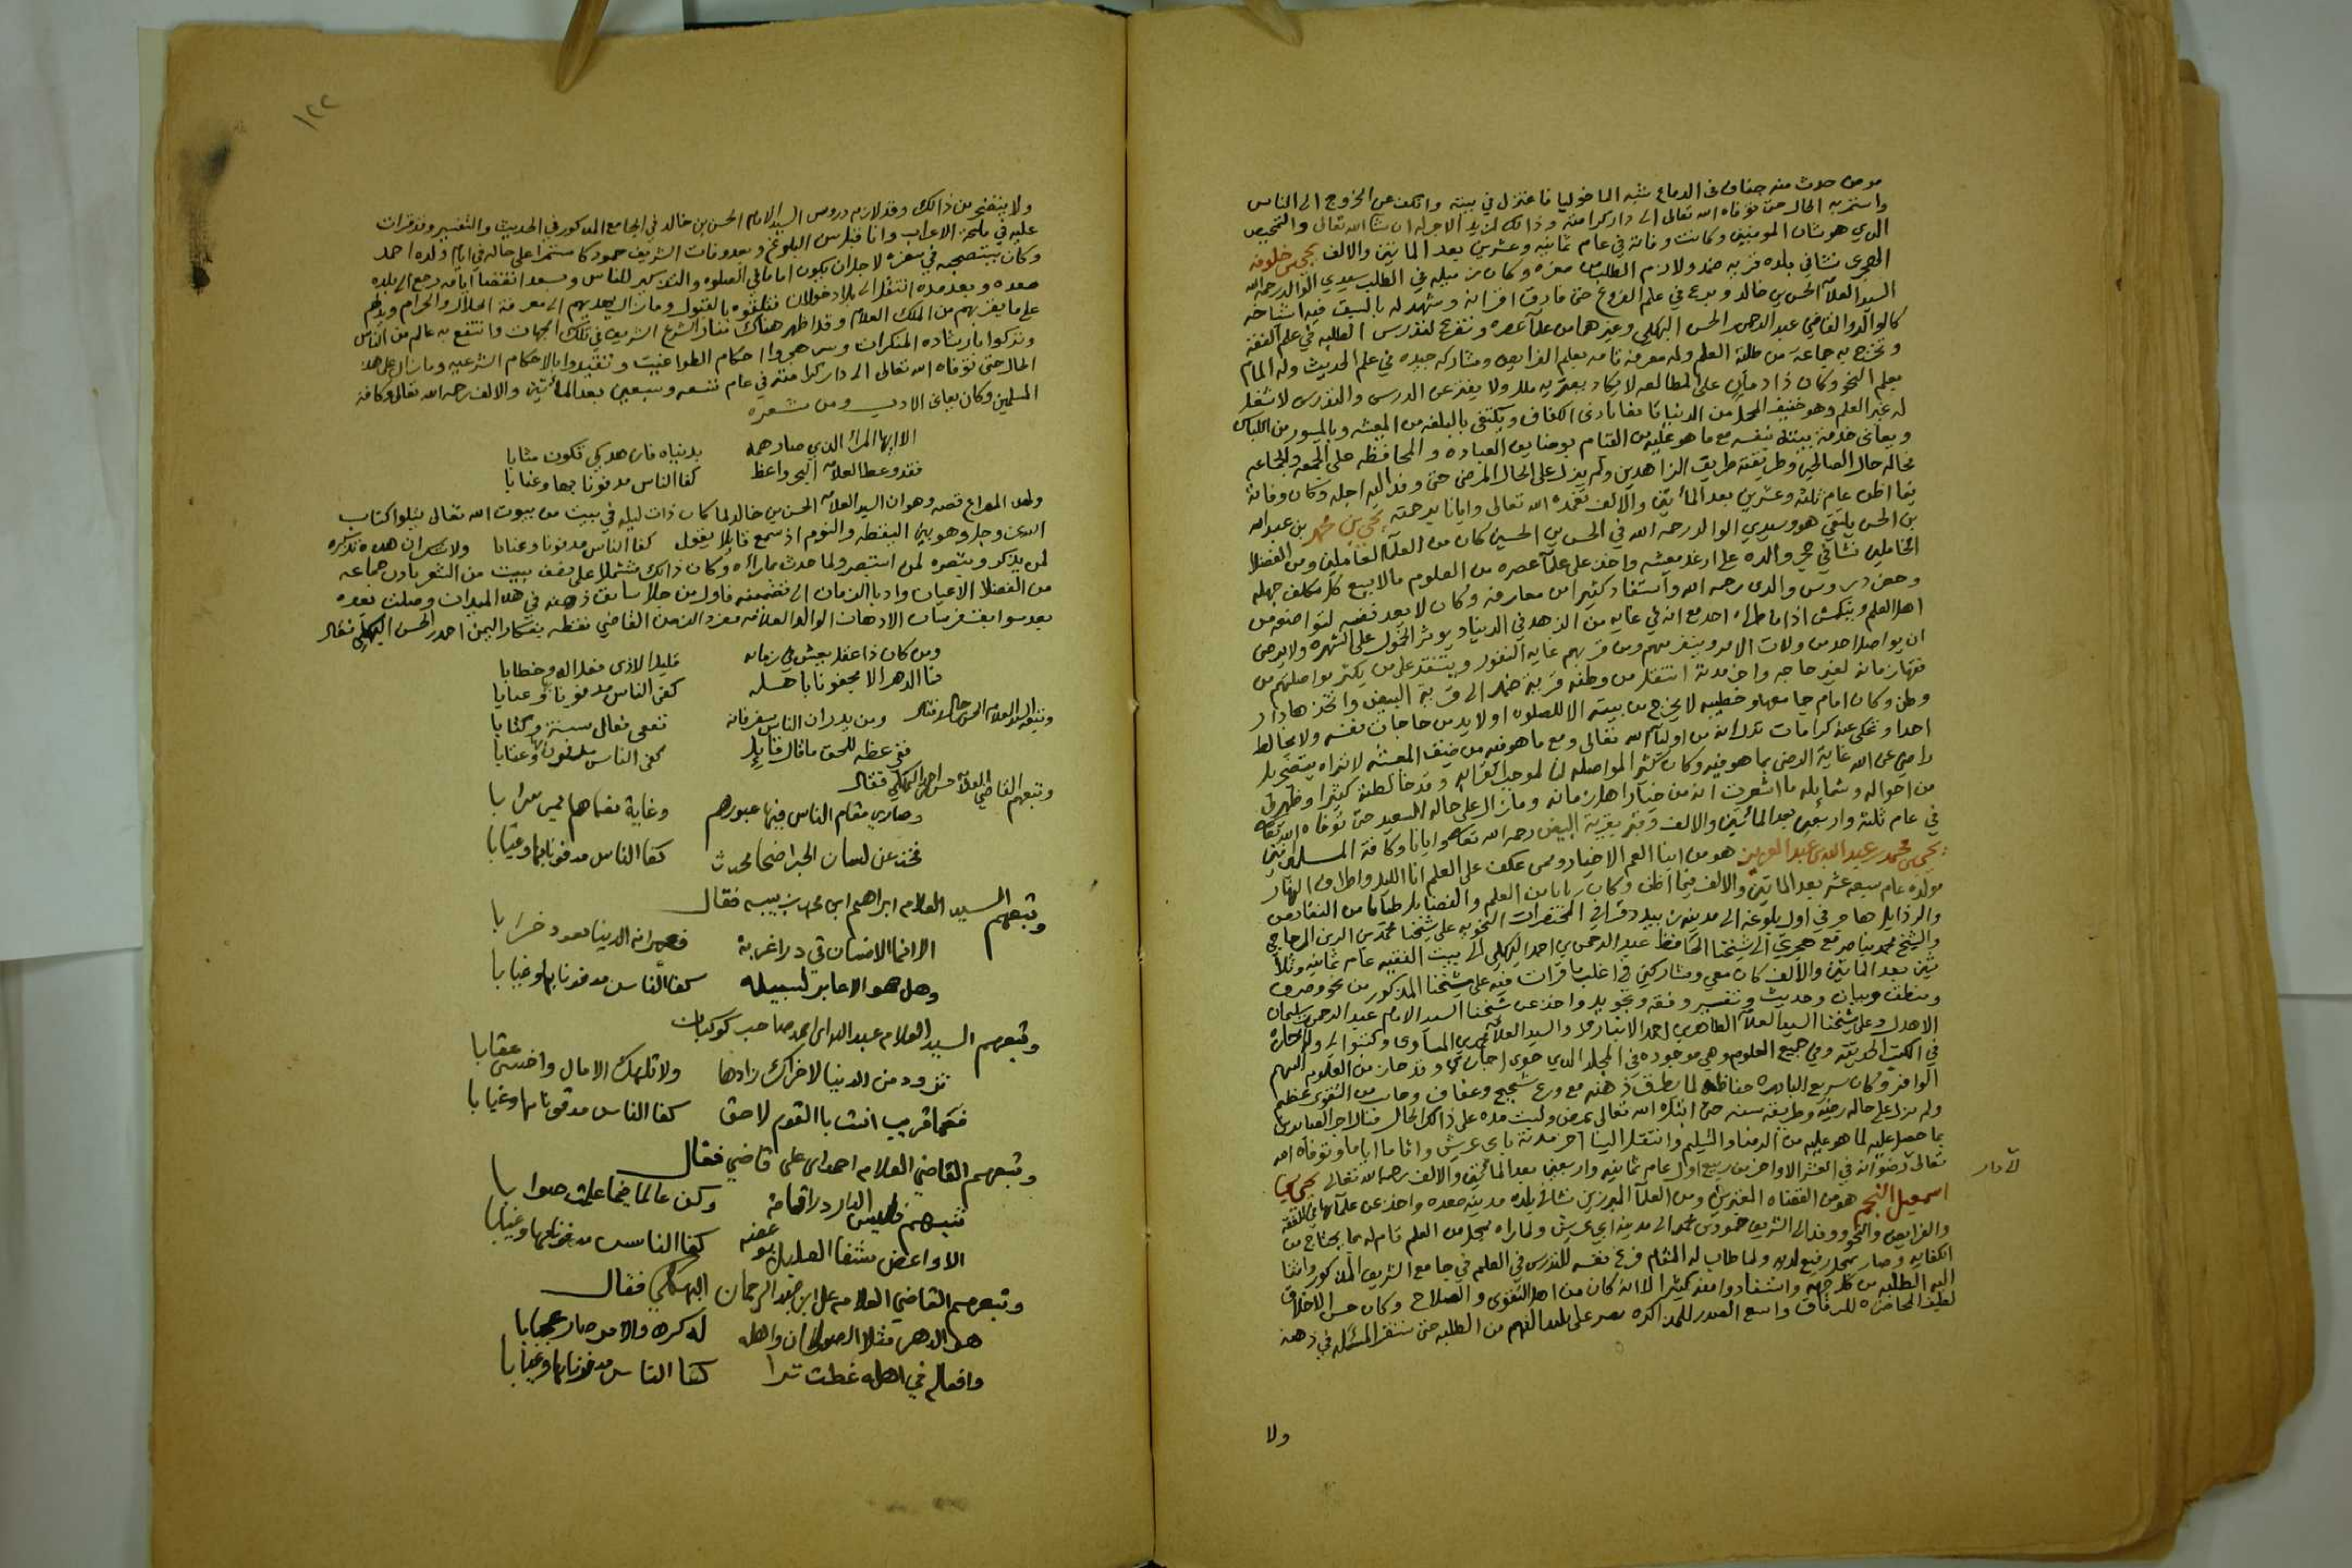 مرض حدث منه جفاف في الدماغ شبه الماخوليا فاعتزل في بيته وانكف عن الخروج الى الناس
واستمر به الحال حتى توفاه الله تعالى الى دار كرامته وذالك لمزيد الاجر له ان شا الله تعالى والتمحيص
الذي هو شان المومنين وكانت وفاته في عام ثمانيه وعشرين بعد الماتين والالف يحيى بن خلوفه
الحجري نشا في بلده قريه ضمد ولازم الطلب من صغره وكان زميله في الطلب سيدي الوالد رحمه الله
السيد العلآ الحسن بن خالد وبرع في علم الفروع حتى فارق اقرانه وشهد له بالسبق فيه اشياخه
كالوالد والقاضي عبد الرحمن الحسن البهكلي وغيرهما من علآ عصره وتفرغ لتدريس الطلبه في علم الفقه
وتخرج به جماعة من طلبة العلم وله معرفة تامه بعلم الفرايض ومشاركه جيده في علم الحديث وله المام
بعلم النحو وكان ذا دمان على المطالعه لا يكاد يعتريه ملل ولا يفتر عن الدرس والتدريس لا شغل
له غير العلم وهو خفيف المحل من الدنيا قانعا بادنى الكفاف ويكتفي بالبلغه من المعيشه وبالميسور من اللباس
ويعاني خدمة بيته بنفسه مع ما هو عليه من القيام بوضايف العباده والمحافظه على الجمعه والجماعه
فحاله حال الصالحين وطريقته طريق الزاهدين ولم يزل على الحال المرضي حتى وفد اليه اجله وكان وفاته
فيما اظن عام ثلثه وعشرين بعد المأتين والالف تغمده الله تعالى وايانا برحمته يحيى بن محمد بن عبد الله
بن الحسن يلتقي هو وسيدي الوالد رحمه الله في الحسن بن الحسين كان من العلآ العاملين ومن الفضلا
الخاملين نشا في حجر والده على ارغد معيشه واخذ على علآ عصره من العلوم مالا يسع كل مكلف جهله
وحضر دروس والدي رحمه الله واستفاد كثيرا من معارفه وكان لا يعد نفسه لتواضعه من
اهل العلم وينكمش اذا ما طراه احد مع انه في غايه من الزهد في الدنيا ويوثر الخمول على الشهره ولا يرضى
ان يواصل احد من ولات الامر وينفر منهم ومن قربهم غايه النفور وينتقد على من يكثر مواصلتهم من
فقها زمانه لغير حاجه واخر مدته انتقل من وطنه قرية ضمد الى قرية البيض واتخذها دار
وطن وكان امام جامعها وخطيبه لا يخرج من بيته الا للصلوه او لابد من حاجات نفسه ولا يخالط
احدا وتحكى عنه كرامات تدل انه من اوليآ الله تعالى ومع ما هو فيه من ضيق المعيشه لا تراه يتضجر بل
راضي عن الله غاية الرضى بما هو فيه وكان كثير المواصله لنا لموجب القرابه وقد خالطته كثيرا وظهر لي
من احواله وشمايله ما اشعرت انه من خيار اهل زمانه وما زال على حاله السعيد حتى توفاه الله تعالى
في عام ثلثه واربعين بعد المأتين والالف وقبر بقرية البيض رحمه الله تعالى وايانا وكافة المسلمين
يحيى بن محمد بن عبد الله بن عبد العزيز هو من ابنا العم الاخيار وممن عكف على العلم انا الليل واطراف النهار
مولده عام سبعه عشر بعد الماتين والالف فيما اظن وكان ريانا من العلم والفضايل ظمآنا من النقايص
والرذايل هاجر في اول بلوغه الى مدينة زبيد وقرا في المختصرات النحويه على شيخنا محمد بن الزين المزجاجي
والشيخ محمد بن ناصر مع هجرتي الى شيخنا الحافظ عبد الرحمن بن احمد البهكلي الى بيت الفقيه عام ثمانيه وثلا
ثين بعد الماتين والالف كان معي ومشاركني في اغلب ما قرات فيه على شيخنا المذكور من نحو وصرف
ومنطق وبيان وحديث وتفسير وفقه وتجويد واخذ عن شيخنا السيد الامام عبد الرحمن بن سليمان
الاهدل وعلى شيخنا السيد العلآ الطاهر بن احمد الانباري والسيد العلآ محمد بن المساوى وكتبوا لي وله اجازة
في الكتب الحديثه وفي جميع العلوم وهي موجوده في المجلد الذي حوى اجازاتي وقد حاز من العلوم السهم
الوافر وكان سريع البادره حفاظه لما يطرق ذهنه مع ورع شحيح وعفاف وحاز من التقوى عظيم
ولم يزل على حاله رضيه وطريقه سنيه حتى ابتلاه الله تعالى بمرض ولبث مده على ذالك الحال فنال اجر الصابرين
بما حصل عليه لما هو عليه من الرضا والتسليم وانتقل الينا اخر مدته بابي عريش واقام اياما وتوفاه الله
تعالى رضوانه في العشر الاواخر من ربيع اول عام ثمانيه واربعين بعد المأتين والالف رحمه الله تعالى يحيى بن
الى دار
اسمعيل النجم هو من الفقهاه المعتبرين ومن العلمآ المبرزين نشا في بلده مدينه صعده واخذ عن علمآئها في الفقه
والفرايض والنحو ووفد الى الشريف حمود بن محمد الى مدينه ابي عريش ولما راه بمحل من العلم قام له بما يحتاج من
الكفايه وصار بمحل رفيع لديه ولما طاب له المقام فرغ نفسه للتدريس في العلم في جامع الشريف المذكور وانثا
اليه الطلبه من كل جهه واستفادوا منه كثيرا الا انه كان من اهل التقوى والصلاح وكان حسن الاخلاق
لطيف المحاضره للرفاق واسع الصدر للمذاكره يصبر على بليد الفهم من الطلبه حتى تستقر المسئله في ذهنه
ولا
١٢٢
ولا يتضجر من ذالك وقد لازم دروس السيد الامام الحسن بن خالد في الجامع المذكور في الحديث والتفسير وقد قرات
عليه في ملحة الاعراب وانا قبل سن البلوغ وبعد وفات الشريف حمود كا مستمرا على حاله في ايام ولده احمد
وكان يستصحبه في سفره لاجل ان يكون اماما في الصلوه والتذكير للناس وبعد انقضا ايامه رجع الى بلده
صعده وبعد مده انتقل الى بلاد خولان فتلقوه بالقبول وما زال يهديهم الى معرفة الحلال والحرام ويدلهم
على ما يقربهم من الملك العلام وقد اظهر هناك منار الشرع الشريف في تلك الجهات وانتفع به عالم من الناس
وتركوا بارشاده المنكرات وهجروا احكام الطواغيت وتقيدوا بالاحكام الشرعيه وما زال على هذا
الحال حتى توفاه الله تعالى الى دار كرامته في عام تسعه وسبعين بعد المأتين والالف رحمه الله تعالى وكافة
المسلمين وكان يعاني الادب ومن شعره
الا ايها المرا الذي صار همه بدنياه فازهد كي تكون مثابا
فقد وعظ العلام اليحي واعظ كفا الناس مدفونا بها وعنابا
ولهذا المصراع قصه وهو ان السيد العلامه الحسن بن خالد لما كان ذات ليله في بيت من بيوت الله تعالى يتلوا كتاب
الله عز وجل وهو بين اليقظه والنوم اذ سمع قايلا يقول كفا الناس مدفونا وعنابا ولا شك ان هذه تذكره
لمن يذكر وتبصره لمن استبصر ولما حدث بما راه وكان ذالك مشتملا على نصف بيت من الشعر بادر جماعه
من الفضلا الاعيان وادبا الزمان الى تضمينه فاول من جلا سابق ذهنه في هذا الميدان وصلت بعده
بعد سوابق فرسان الاذهان الوالد العلامه مفرد الزمن القاضي نقطه بيكار اليمن احمد بن الحسن البهكلي فقال
ومن كان ذا عقل يعيش في زمانه قليل الاذى فعلا له وخطابا
فما الدهر الا يجفونا باهله كفى الناس مدفونا بها وعنابا
وتبعه السيد العلام الحسن بن خالد فقال ومن يدر ان الناس تنعى تعالى سنة وكتابا
ففي عظه للحق ما قال قايل كفى الناس مدفونا بها وعنابا
وتبعهم القاضي العلام حسن بن احمد البهكلي فقال
وصار مقام الناس فيها عبورهم وغاية
فخذ عن لسان الجد اضحا محدث كفا الناس مدفونا بها وعنابا
وتبعهم السيد العلام ابراهيم ابن محمد زبيبه فقال
الا انما الانسان في دار غربة فعمرانه الدنيا يعود خرابا
وهل هو الا عابر لسبيله كفا الناس مدفونا بها وغيابا
وتبعهم السيد العلام عبد الله ابن احمد صاحب كوكبان
تزود من الدنيا لاخراك زادها ولا تلهك الامال واخش عقابا
فعما قريب انت بالقوم لاحق كفا الناس مدفونا بها وغيابا
وتبعهم القاضي العلام احمد ابن علي قاضي فقال
تنبه فليس الدار دار اقامة وكن عالما فيما علمت صوابا
الا واعض شفا العليل بوعضه كفا الناس مدفونا بها وغيابا
وتبعهم القاضي العلام علي ابن عبد الرحمان البهكلي فقال
هو الدهر مثل الصولجان واهله له كره والامر صار عجابا
وافعاله في اهله عظت ترا كفا الناس مدفونا بها وغيابا